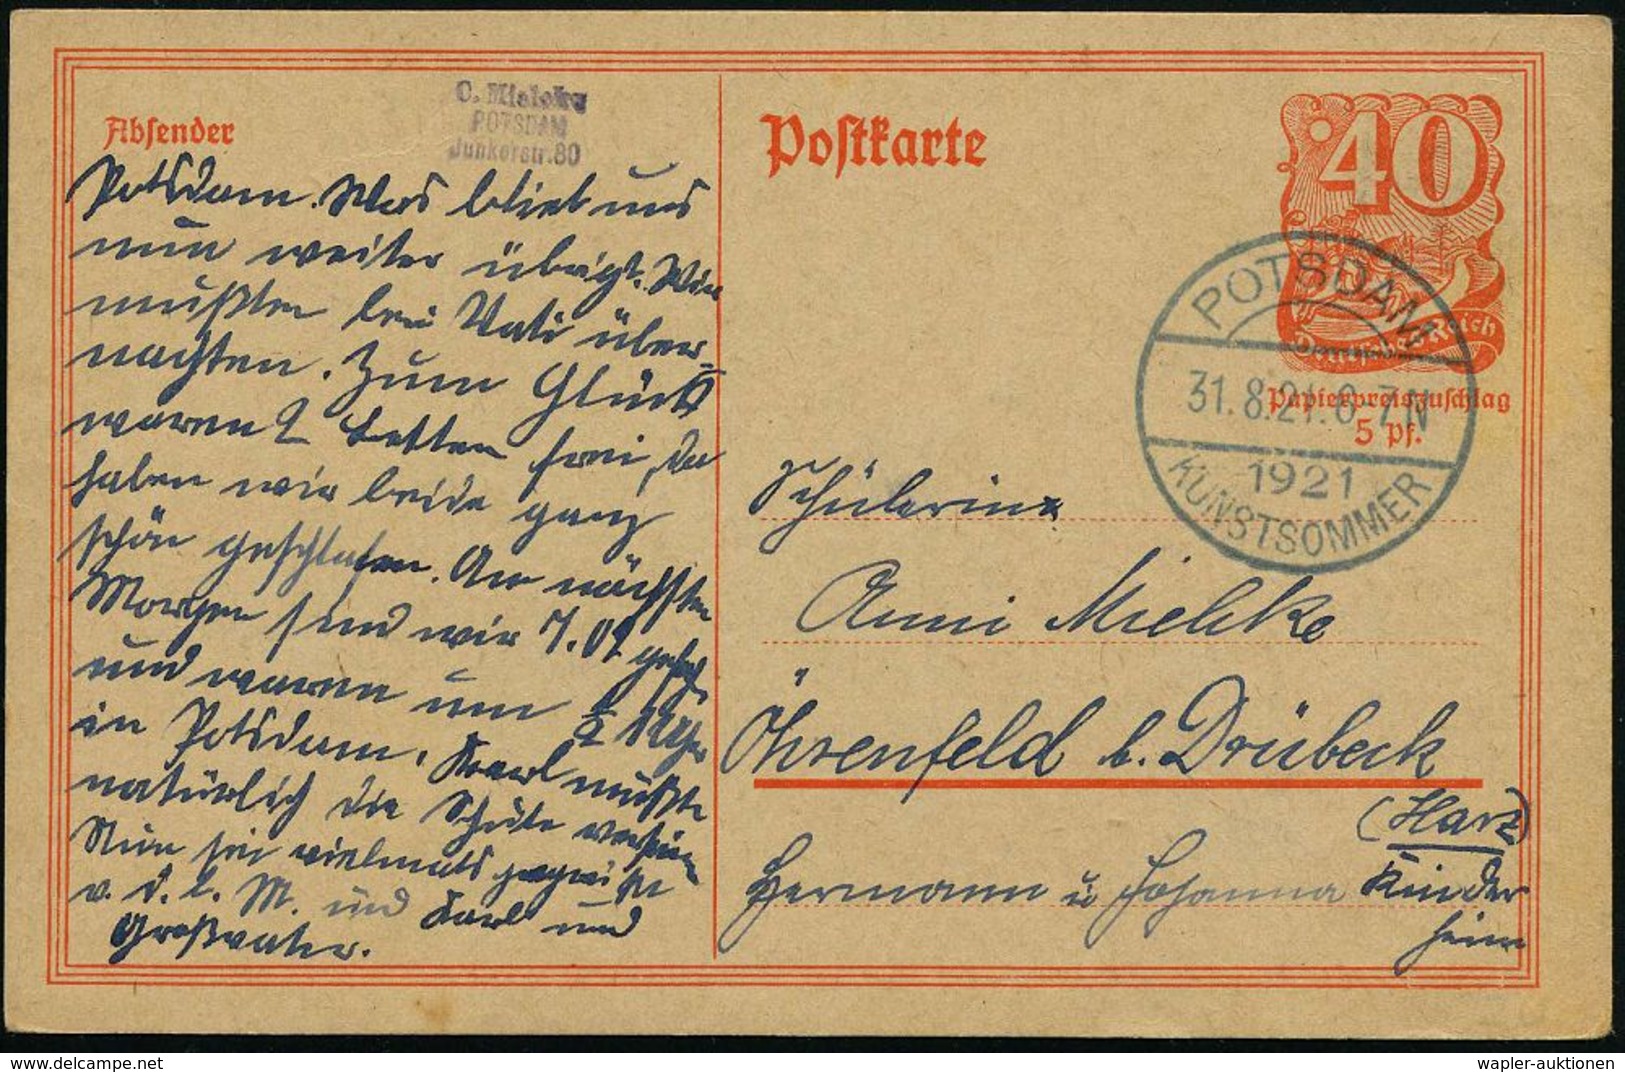 Absender
POTSDAM
Junkerstr. 80
Potsdam. Was blieb uns
nun weiter übrigt. Wir
mußten bei Vati über-
nachten. Zum Glück
waren 2 Betten frei, da
haben wir beide ganz
schön geschlafen. Am nächsten
Morgen sind wir 7.07
und waren um ½ 11 Uhr
in Potsdam. Karl mußte
natürlich die Schule
Nun sei vielmals gegrüßt
v. d. l. M. und Karl und
Großvater.
Postkarte
40
Deutsches Reich
Papierpreiszuschlag
5 Pf.
POTSDAM
31.8.21. 6-7N
1921
KUNSTSOMMER
Schülerin
Anni Mielke
Öhrenfeld b. Drübeck
(Harz)
Hermann u Johanna Kinder
heim
© www.delcampe.net
wapler-auktionen